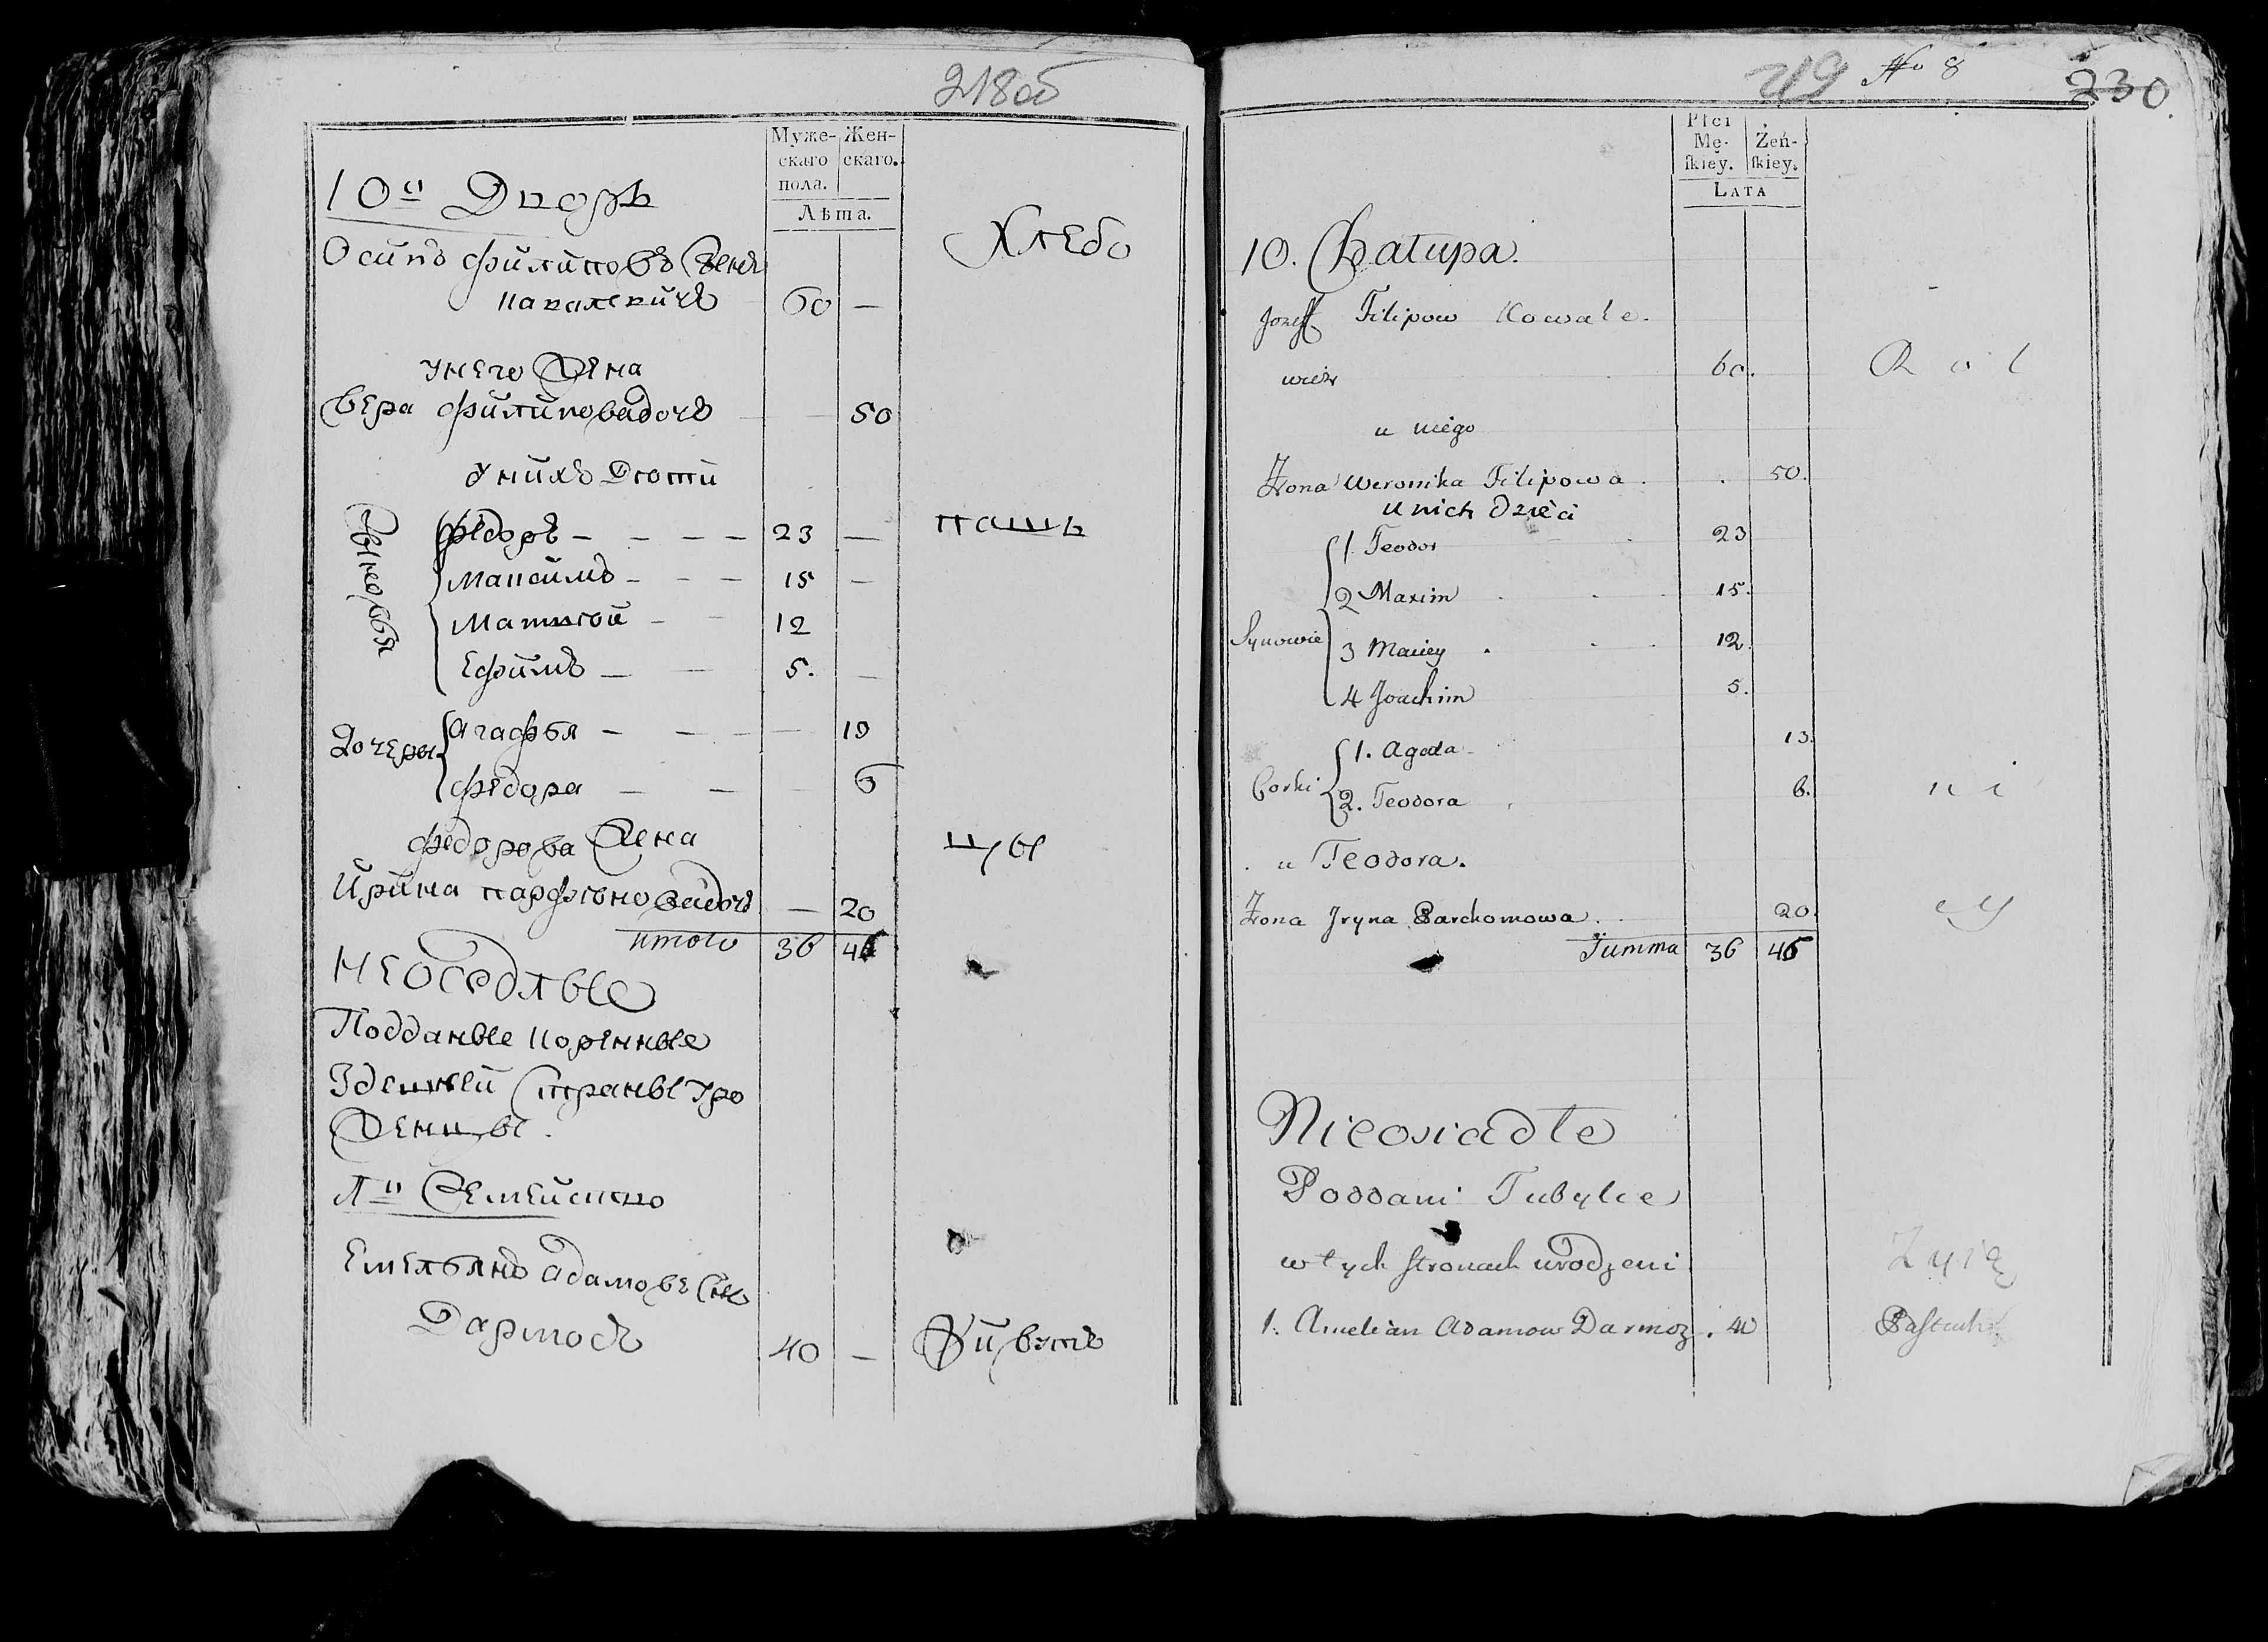 218об
Муже-
скаго
пола.
Жен-
скаго.
Лѣта.
10й Дворъ
Осипъ Филиповъ Сынъ
Кавалевичъ 60 —
Хлебо
унего Жена
Вера Филиповадочь — 50
Унихъ Дети
Сыновья
Федоръ — — — — 23 —
пашъ
Максимъ — — — 15 —
Матвей — — 12
Ефимъ — — 5. —
Дочеры
Агафья — — — — 19
Федора — — — 6
Федорова Жена
цы
Ирина парфеновадочь — 20
итого 36 46
Неоседлые
Подданые Коренные
Здешней Страны Уро
женцы.
1й Семейство
Емельянъ Адамовъ Сынъ
Дармосъ 40 —
Живутъ
219 No 8 230
Płci
Mę-
ſkiey.
Żeń-
ſkiey.
LATA
10. Chatupa.
Jozeff Filipow Kowale.
wicz 60.
R o l
u niego
Zona Weronika Filipowa . . 50.
u nich dzieci
1. Teodor 23
2 Maxim . . . 15.
Synowie
3 Maciey . . . 12.
4 Joachim 5.
1. Agoda 13.
Corki
2. Teodora 6.
n i
u Teodora.
Zona Jryna Parchomowa . 20.
cy
Summa 36 46
Nieosiadłe
Poddani Tubylce
w tych ſtronach urodzeni
Zyią
1. Amelian Adamow Darmoz . 40
Paſtuch